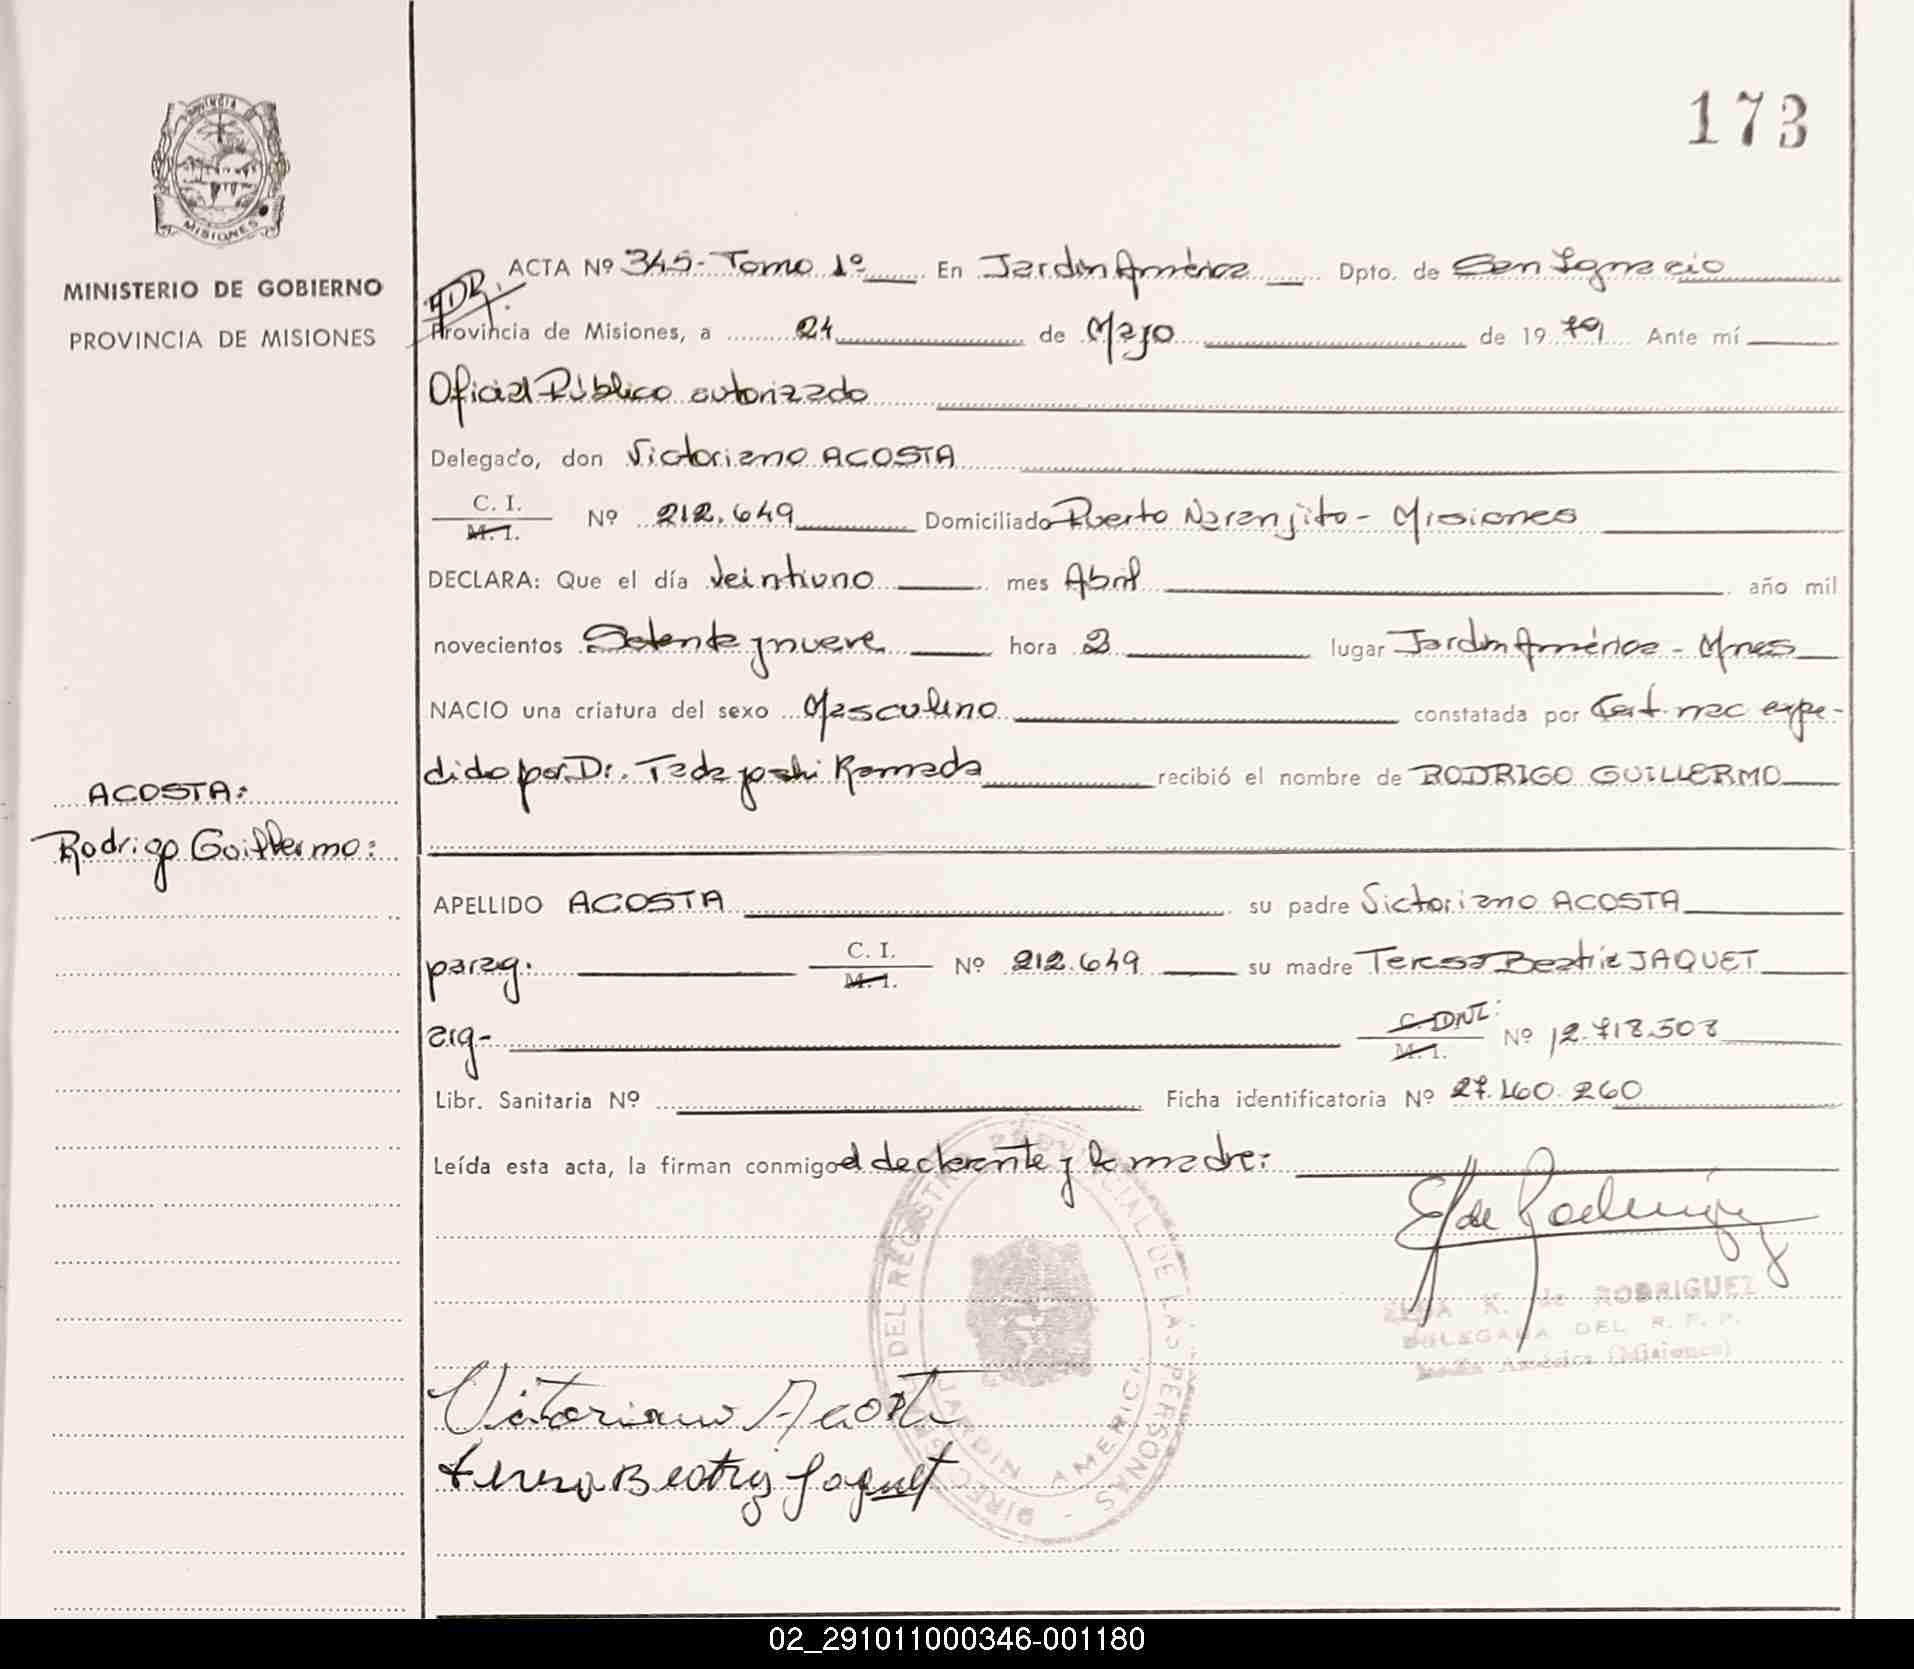 173
PROVINCIA
MISIONES
MINISTERIO DE GOBIERNO
PROVINCIA DE MISIONES
ACTA Nº 345- Tomo 1º En Jardín América Dpto. de San Ignacio
Provincia de Misiones, a 24 de Mayo de 1979 Ante mí
Oficial Público autorizado
Delegado, don Victoriano ACOSTA
C. I.
M. I.
Nº 212.649 Domiciliado Puerto Naranjito - Misiones
DECLARA: Que el día Veintiuno mes Abril año mil
novecientos Setenta y nueve hora 2 lugar Jardín América - Mnes
NACIO una criatura del sexo Masculino constatada por Cert. nac expe-
dido por Dr. Tadayoshi Kamada recibió el nombre de RODRIGO GUILLERMO
ACOSTA:
Rodrigo Guillermo:
APELLIDO ACOSTA su padre Victoriano ACOSTA
parag. C. I.
M. I.
Nº 212.649 su madre Teresa Beatriz JAQUET
arg- DNI:
M. I.
Nº 12.718.508
Libr. Sanitaria Nº Ficha identificatoria Nº 27.460.260
Leída esta acta, la firman conmigo el declarante y la madre:
E K de Rodriguez
K. de RODRIGUEZ
DELEGADA DEL R. P. P.
Jardín América (Misiones)
DEL REGISTRO PROVINCIAL DE LAS PERSONAS
JARDIN AMERICA
Victoriano Acosta
Teresa Beatriz Jaquet
02_291011000346-001180